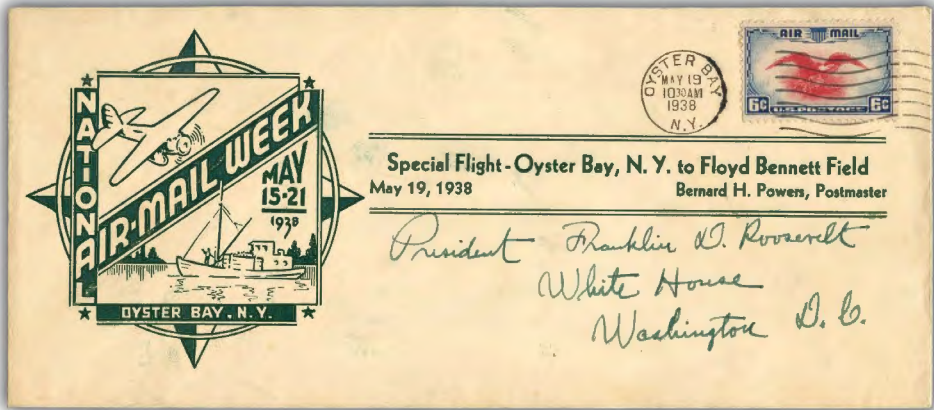 NATIONAL
AIR-MAIL WEEK
MAY
15-21
1938
OYSTER BAY, N.Y.
OYSTER BAY
MAY 19
10 30 AM
1938
N.Y.
AIR MAIL
6¢ 6¢
U.S. POSTAGE
Special Flight - Oyster Bay, N. Y. to Floyd Bennett Field
May 19, 1938 Bernard H. Powers, Postmaster
President Franklin D. Roosevelt
White House
Washington D. C.